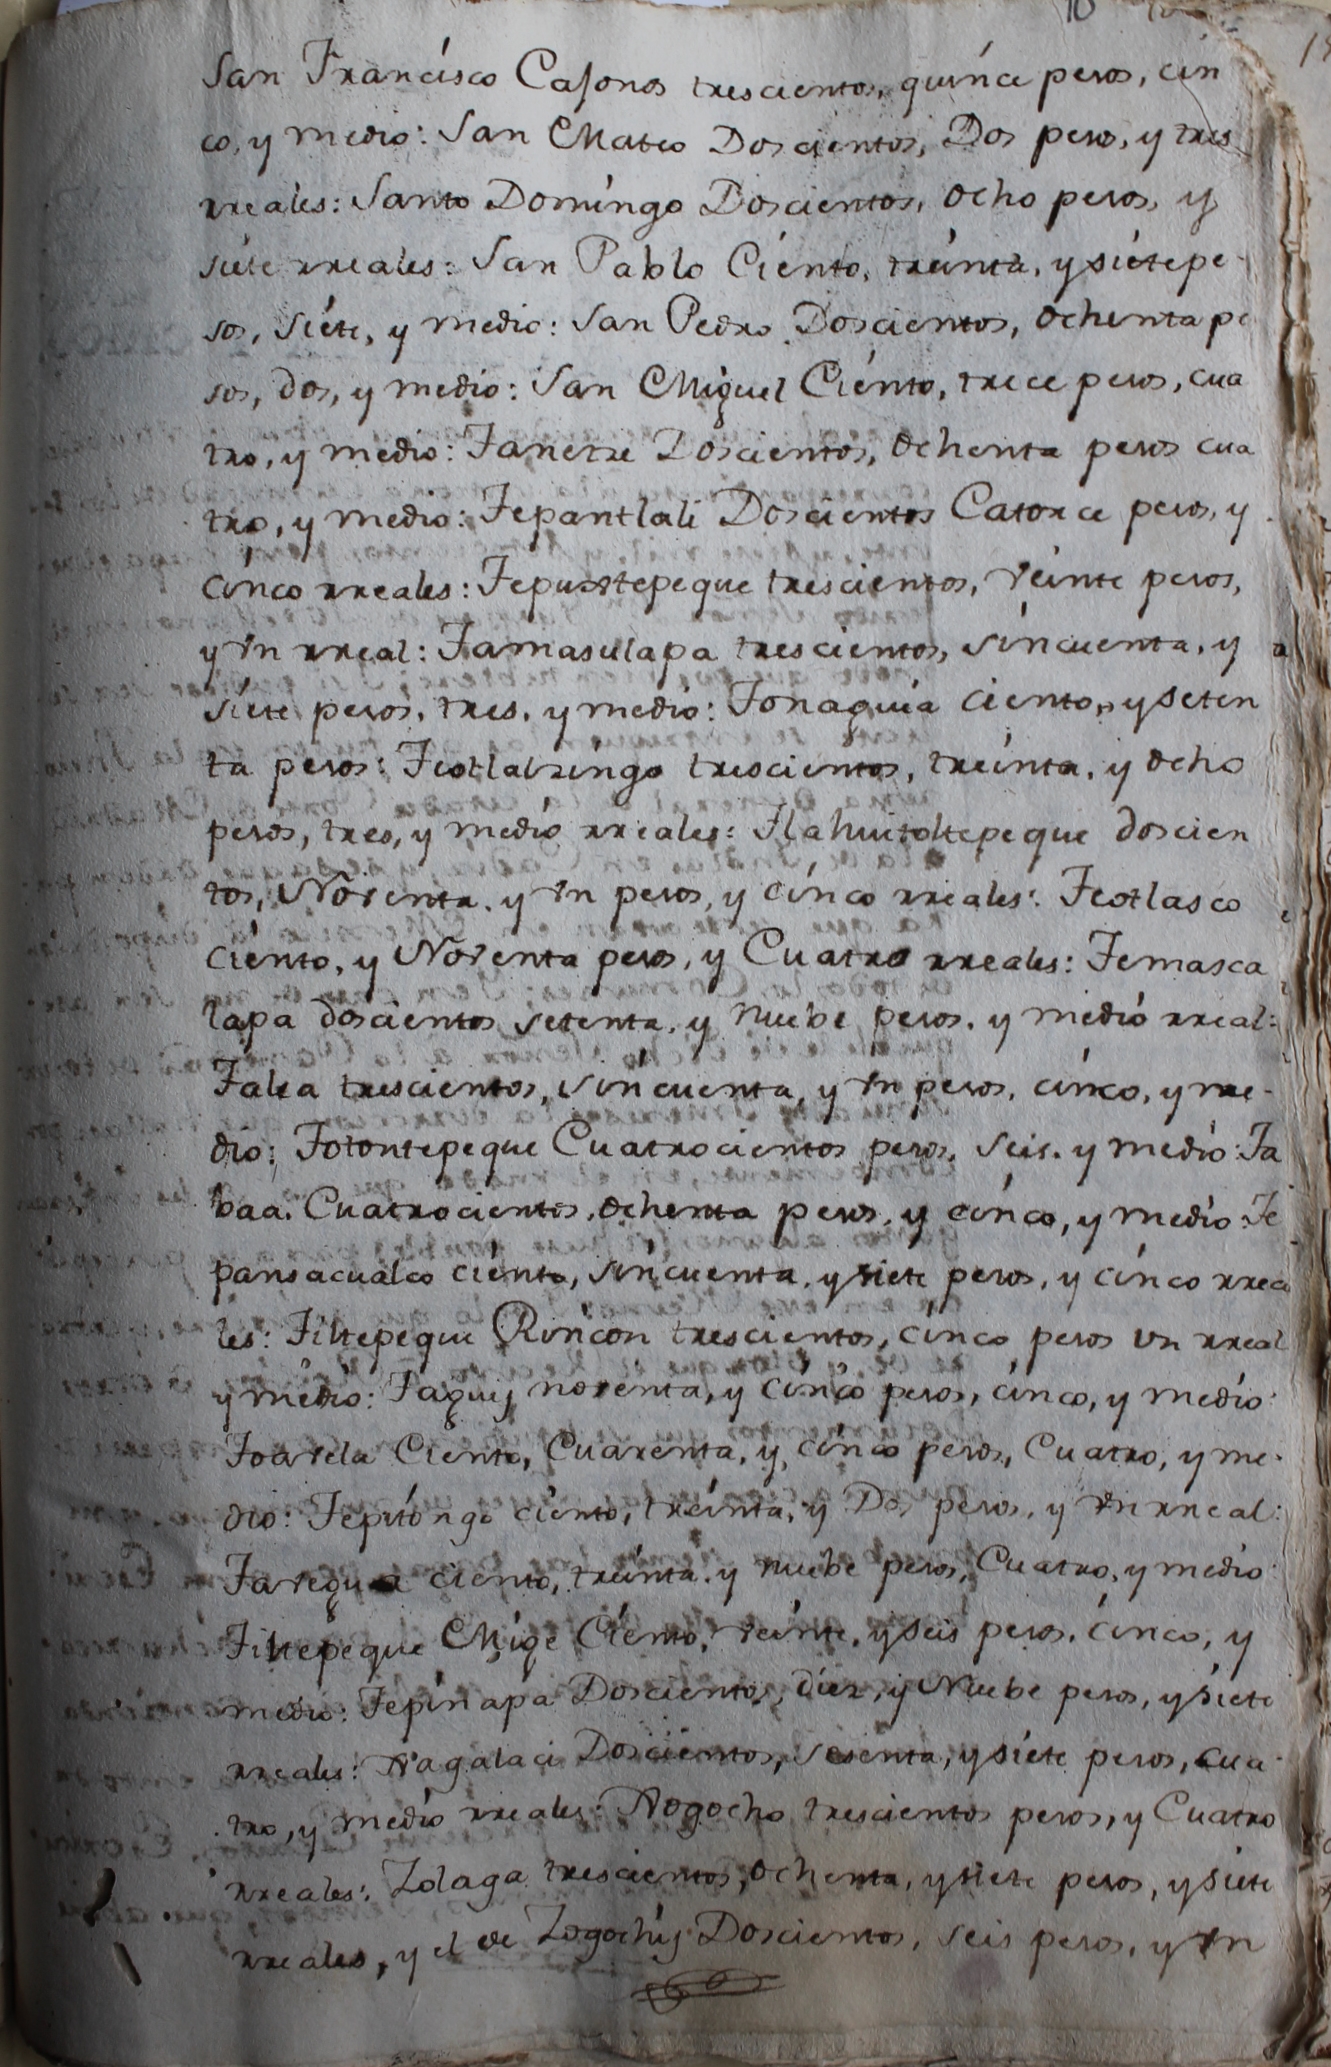 10
San Francisco Cajonos trescientos, quínce pesos, cín
co, y medio: San Mateo Doscientos, Dos pesos, y tres
rreales: Santo Domíngo Doscientos, ocho pesos, y
síete rreales: San Pablo Cíento, treínta, y síete pe-
sos, síete, y medio: San Pedro Doscientos, ochenta pe
sos, dos, y medio: San Miguel Cíento, trece pesos, cua
tro, y medio: Tanetze Doscientos, ochenta pesos cua
tro, y medio: Tepantlali Doscientos Catorce pesos, y
cínco rreales: Tepuxtepeque trescientos, veínte pesos,
y vn rreal: Tamasulapa trescientos, síncuenta, y
síete pesos, tres, y medio: Tonaguía ciento, y seten
ta pesos: Teotlatzíngo trescientos, treínta, y ocho
pesos, tres, y medio rreales: Tlahuitoltepeque doscien
tos, Noventa, y vn pesos, y cínco rreales: Teotlasco
Cíento, y Noventa pesos, y Cuatro rreales: Temasca
lapa doscientos setenta, y nuebe pesos, y medio rreal:
Talea trescientos, síncuenta, y vn pesos, cínco, y me-
dio: Totontepeque Cuatrocientos pesos, seis, y medio: Ta
baa, Cuatrocientos, ochenta pesos, y cínco, y medio: Te
pansacualco cíento, síncuenta, y siete pesos, y cínco rrea
les: Tiltepeque Rincon trescientos, cínco pesos vn rreal
y medio: Taguij noventa, y cínco pesos, cínco, y medío:
Toavela Ciento, Cuarenta, y cínco pesos, Cuatro, y me-
dio: Tepitóngo cíento, treínta, y Dos pesos, y vn rreal:
Tavegua ciento, treínta, y nuebe pesos, Cuatro, y medio:
Tiltepeque Míge Cíento, veínte, y seis pesos, cínco, y
medio: Tepínapa Doscientos, díez, y Nuebe pesos, y síete
rreales: Yagalaci Doscientos, sesenta, y síete pesos, cua-
tro, y medio rreales: Yogocho trescientos pesos, y Cuatro
rreales: Zolaga trescientos, ochenta, y siete pesos, y síete
rreales, y el de Zogochij Doscientos, seis pesos, y vn